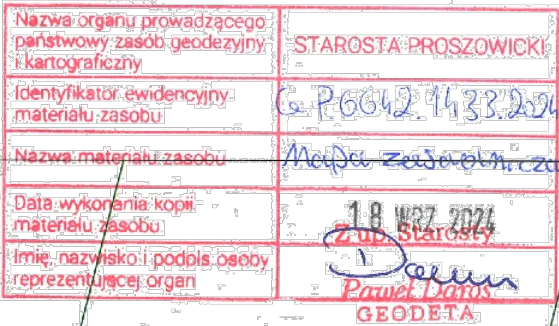 Nazwa organu prowadzącego
państwowy zasób geodezyjny
i kartograficzny
STAROSTA PROSZOWICKI
Identyfikator ewidencyjny
materiału zasobu
GP.6642.1433.2024
Nazwa materiału zasobu
Mapa zasadnicza
Data wykonania kopii
materiału zasobu
18 WRZ. 2024
Imię, nazwisko i podpis osoby
reprezentującej organ
Z up. Starosty
Paweł Daros
GEODETA